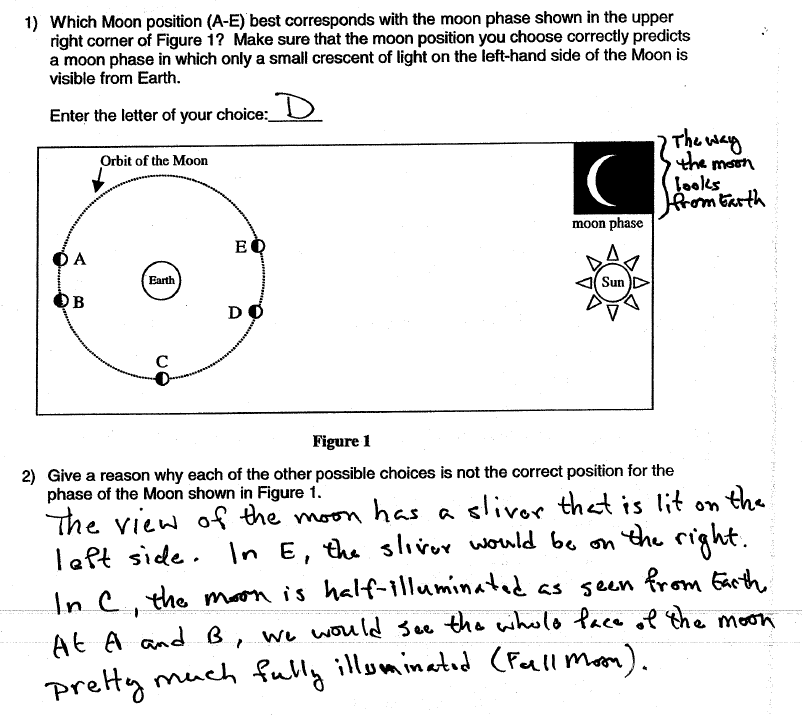 1) Which Moon position (A-E) best corresponds with the moon phase shown in the upper
right corner of Figure 1? Make sure that the moon position you choose correctly predicts
a moon phase in which only a small crescent of light on the left-hand side of the Moon is
visible from Earth.
Enter the letter of your choice: D
Orbit of the Moon
The way
the moon
looks
from Earth
moon phase
E
A
Earth
Sun
B
D
C
Figure 1
2) Give a reason why each of the other possible choices is not the correct position for the
phase of the Moon shown in Figure 1.
The view of the moon has a sliver that is lit on the
left side. In E, the sliver would be on the right.
In C, the moon is half-illuminated as seen from Earth.
At A and B, we would see the whole face of the moon
pretty much fully illuminated (Full Moon).